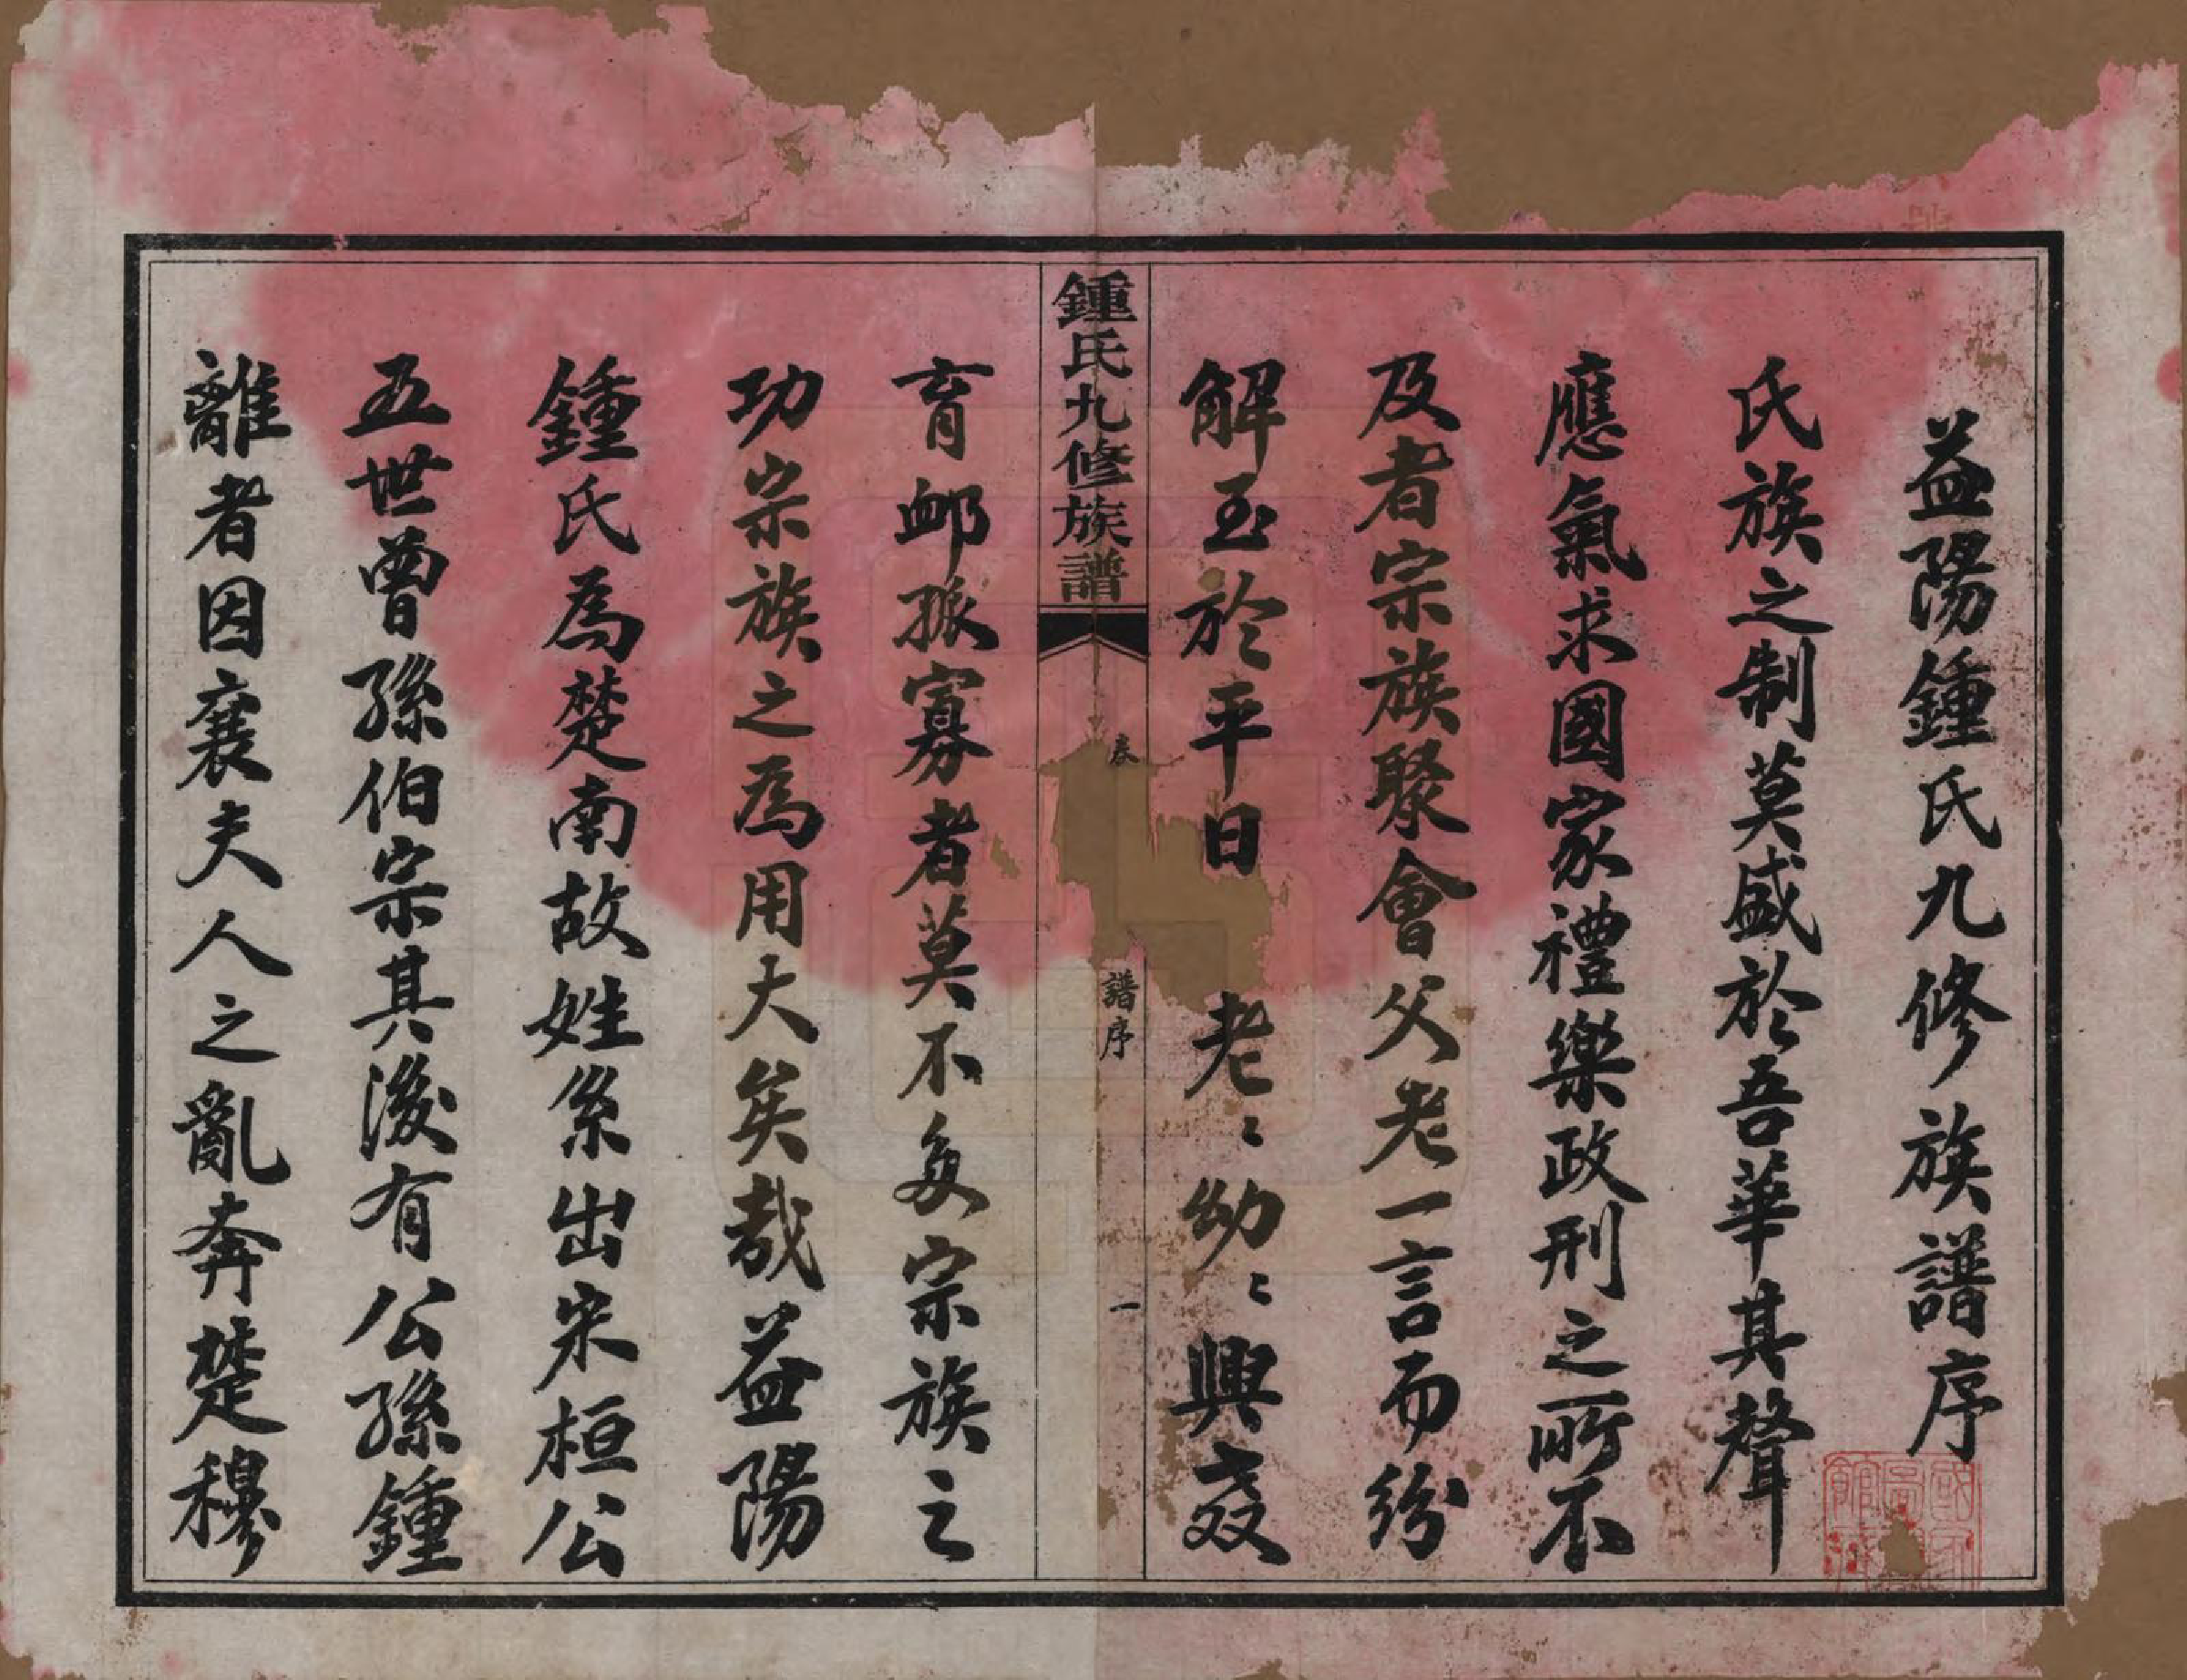 益陽鍾氏九修族譜序
氏族之制莫盛於吾華其聲
應氣求國家禮樂政刑之所不
及者宗族聚會父老一言而紛
解至於平日老〻幼〻興養
鍾氏九修族譜
卷
譜序
一
育卹孤寡者莫不多宗族之
功宗族之為用大矣哉益陽
鍾氏為楚南故姓系出宋桓公
五世曾孫伯宗其後有公孫鍾
離者因襄夫人之亂奔楚穆